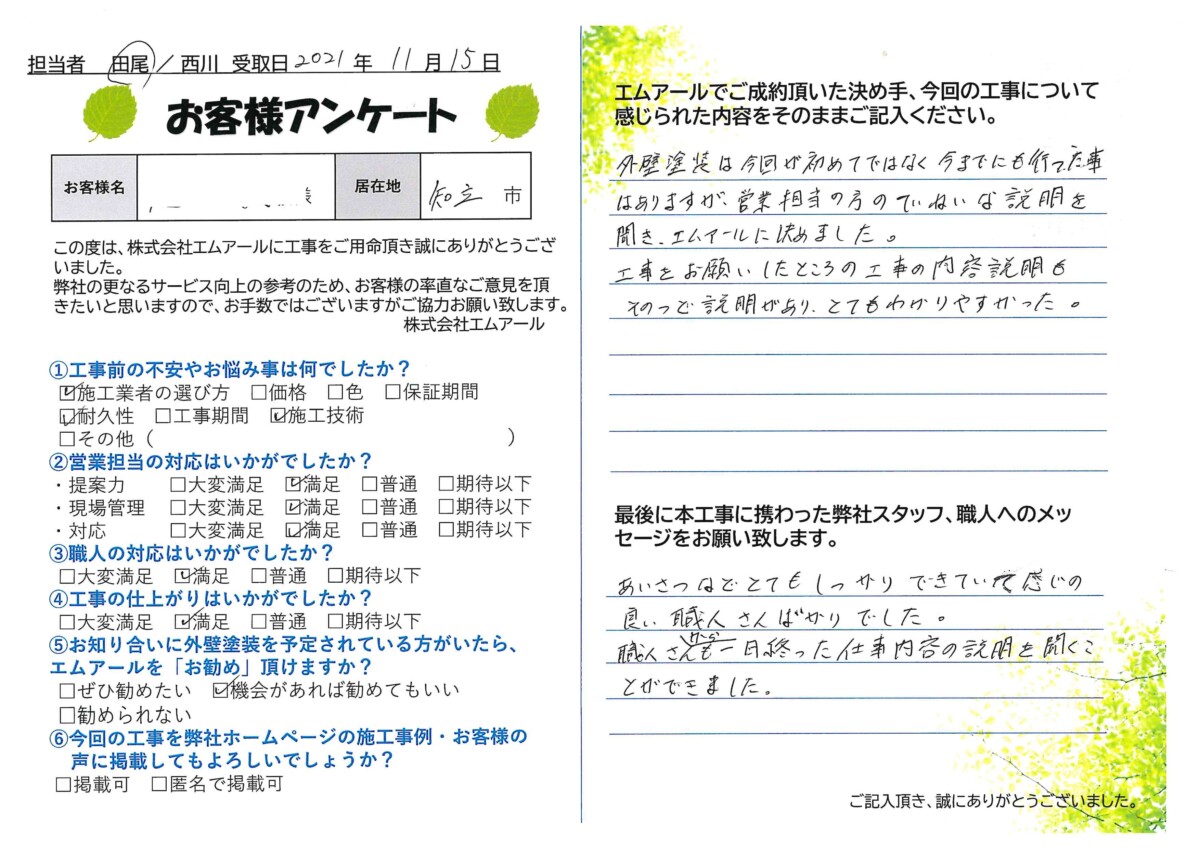 担当者 田尾／西川 受取日 2021 年 11 月 15 日
お客様アンケート
お客様名 様 居在地 知立 市
この度は、株式会社エムアールに工事をご用命頂き誠にありがとうござ
いました。
弊社の更なるサービス向上の参考のため、お客様の率直なご意見を頂
きたいと思いますので、お手数ではございますがご協力お願い致します。
株式会社エムアール
①工事前の不安やお悩み事は何でしたか？
☑施工業者の選び方 □価格 □色 □保証期間
☑耐久性 □工事期間 ☑施工技術
□その他（ ）
②営業担当の対応はいかがでしたか？
・提案力 □大変満足 ☑満足 □普通 □期待以下
・現場管理 □大変満足 ☑満足 □普通 □期待以下
・対応 □大変満足 ☑満足 □普通 □期待以下
③職人の対応はいかがでしたか？
□大変満足 ☑満足 □普通 □期待以下
④工事の仕上がりはいかがでしたか？
□大変満足 ☑満足 □普通 □期待以下
⑤お知り合いに外壁塗装を予定されている方がいたら、
エムアールを「お勧め」頂けますか？
□ぜひ勧めたい ☑機会があれば勧めてもいい
□勧められない
⑥今回の工事を弊社ホームページの施工事例・お客様の
声に掲載してもよろしいでしょうか？
□掲載可 □匿名で掲載可
エムアールでご成約頂いた決め手、今回の工事について
感じられた内容をそのままご記入ください。
外壁塗装は今回が初めてではなく今までにも行った事
はありますが、営業担当の方のていねいな説明を
聞き、エムアールに決めました。
工事をお願いしたところの工事の内容説明も
そのつど説明があり、とてもわかりやすかった。
最後に本工事に携わった弊社スタッフ、職人へのメッ
セージをお願い致します。
あいさつなどとてもしっかりできてい 感じの
良い職人さんばかりでした。
職人さん 一日終った仕事内容の説明を聞くこ
とができました。
ご記入頂き、誠にありがとうございました。